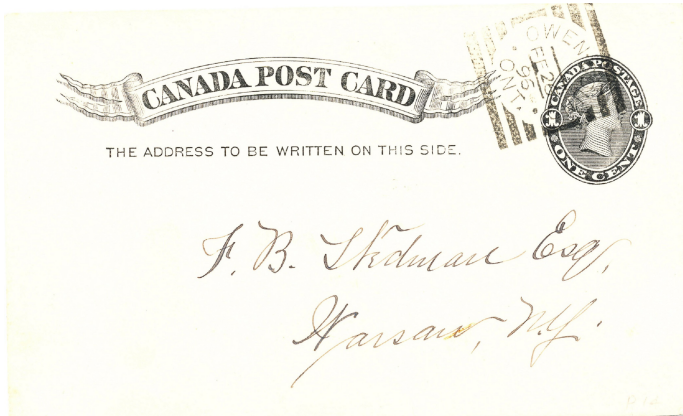 CANADA POST CARD
THE ADDRESS TO BE WRITTEN ON THIS SIDE.
OWEN
FE 26
96
ONT
CANADA POSTAGE
ONE CENT
F. B. Stedman Esq,
Warsaw, N.Y.